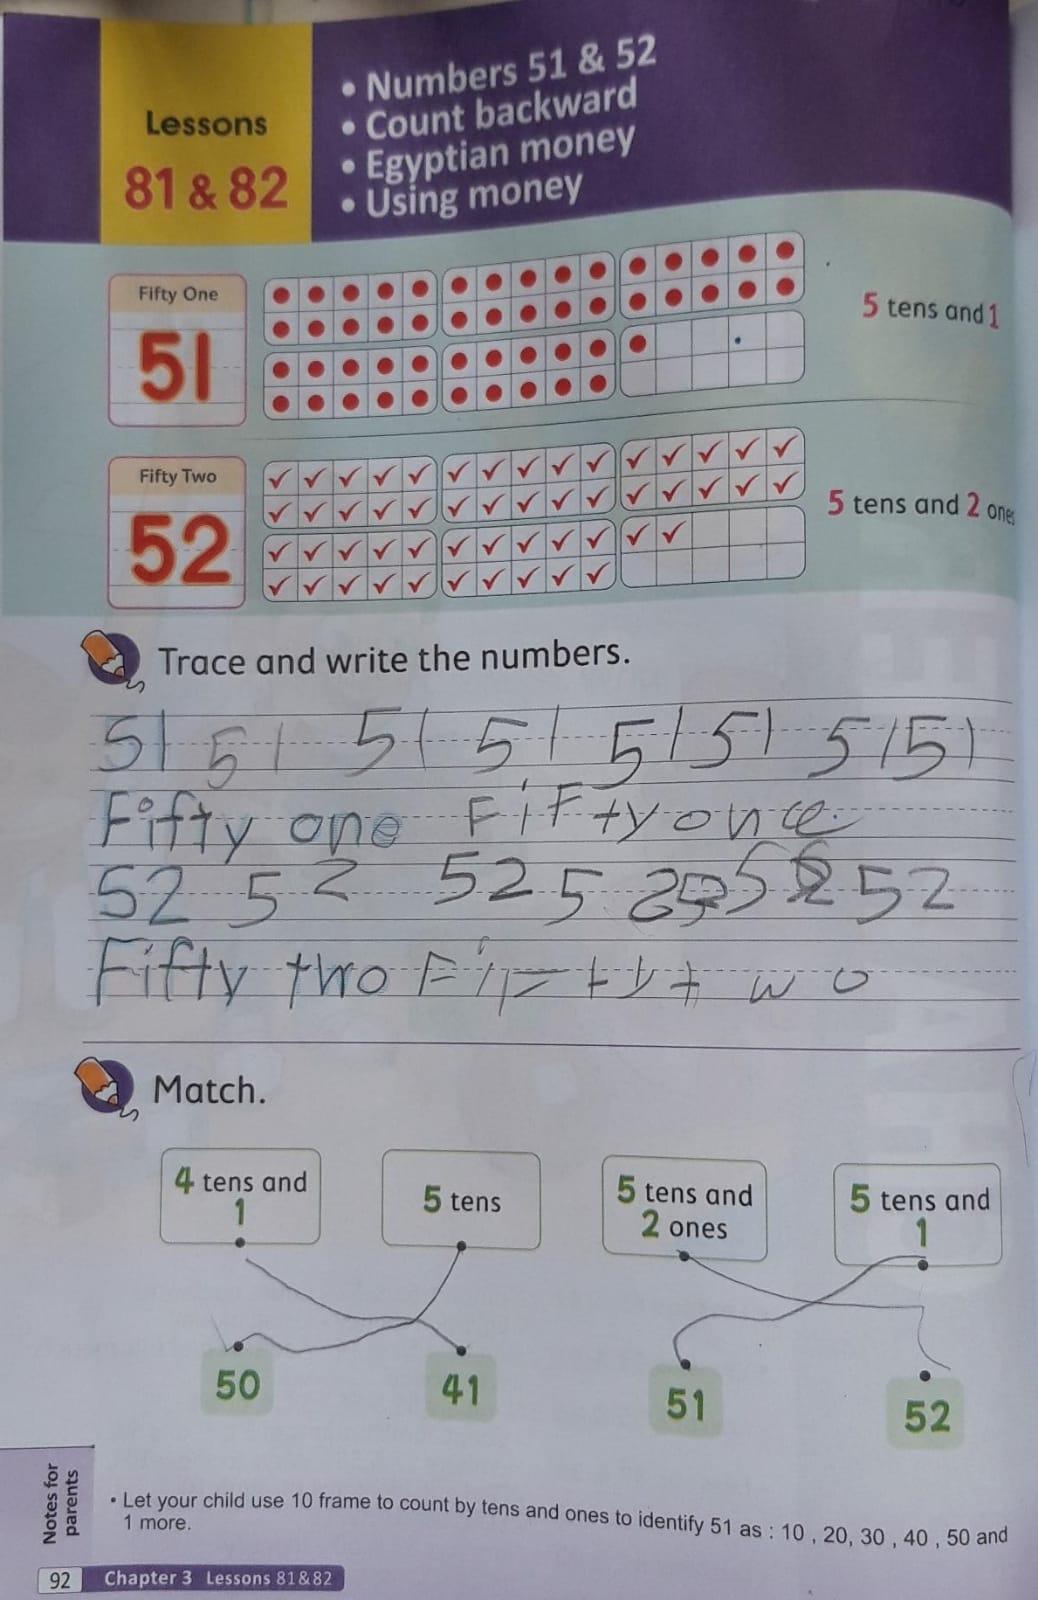 Lessons
81 & 82
• Numbers 51 & 52
• Count backward
• Egyptian money
• Using money
Fifty One
51
5 tens and 1
Fifty Two
52
5 tens and 2 ones
Trace and write the numbers.
51 51 51 51 51 51 51 51
Fifty one FiFty once
52 52 52 5 52 52
Fifty two Fifty two
Match.
4 tens and
1
5 tens
5 tens and
2 ones
5 tens and
1
50 41 51 52
Notes for
parents
• Let your child use 10 frame to count by tens and ones to identify 51 as : 10 , 20, 30 , 40 , 50 and
1 more.
92 Chapter 3 Lessons 81&82